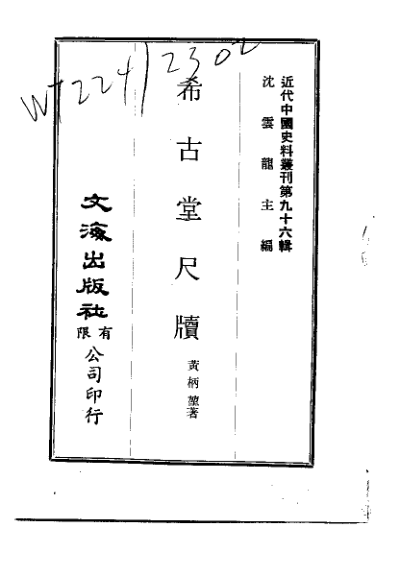 WT224/2302
近代中國史料叢刊第九十六輯
沈雲龍主編
希古堂尺牘
黃柄堃著
文海出版社
有限
公司印行